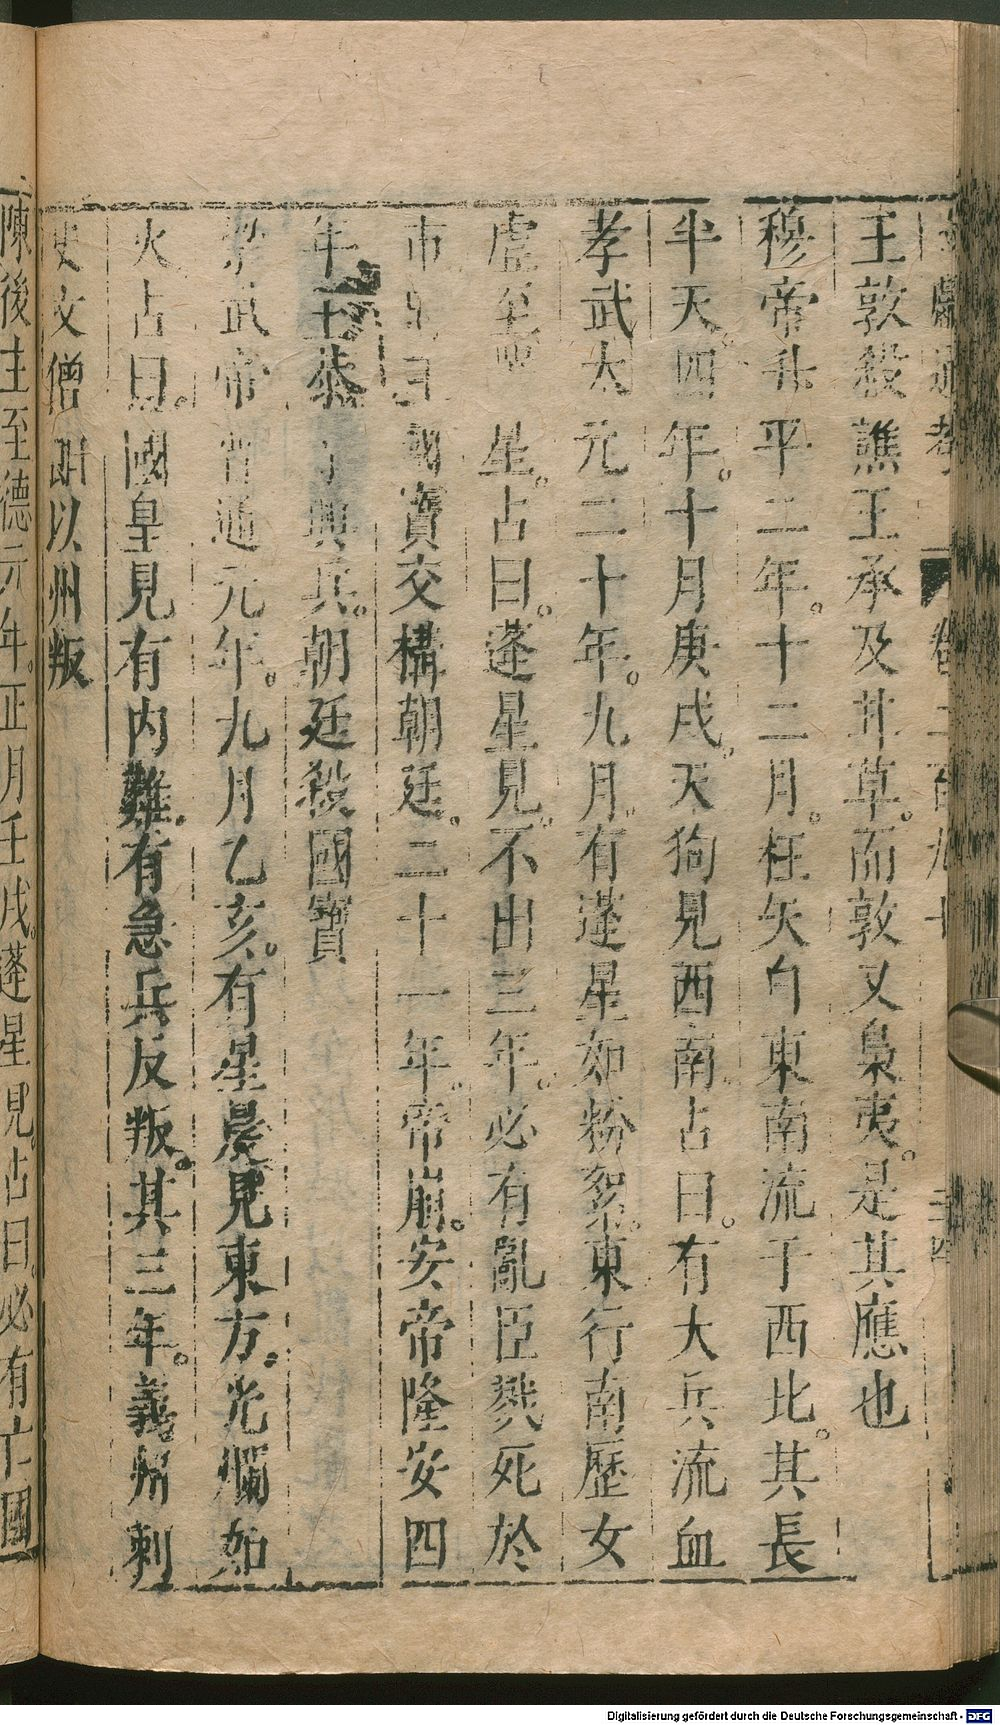 王敦殺譙王承及廿草而敦又梟夷。是其應也
穆帝升平二年。十二月。枉矢自東南流于西北。其長
半天。四年。十月庚戌。天狗見西南。占曰。有大兵流血
孝武太元二十年。九月。有蓬星如粉絮。東行南歷女
虛至 星。占曰。蓬星見。不出三年。必有亂臣戮死於
市 國寶交構朝廷。二十一年。帝崩。安帝隆安四
年王恭 興兵。朝廷殺國寶
武帝普通元年。九月乙亥。有星晨見東方。光爛如
火占曰。國皇見有内難。有急兵反叛。其三年。義州刺
史文僧明以州叛
陳後主至德元年。正月壬戌。蓬星見。占曰。必有亡國
Digitalisierung gefördert durch die Deutsche Forschungsgemeinschaft - DFG